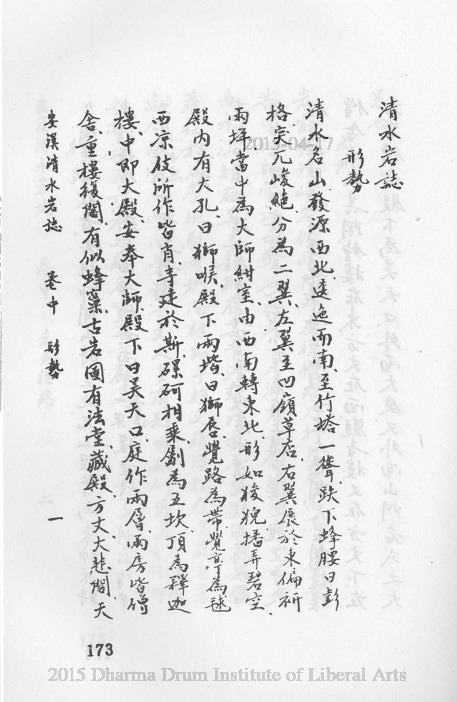 清水岩誌
形勢
清水岩山發源西北逶迤而南、至竹塔一聳、跌下蜂腰曰彭
格、突兀峻絕、分為二翼、左翼至凹嶺草店、右翼展於東偏
兩坪、當中為大師紺室、由西南轉東北、形如狻猊播弄碧空、
殿內有大孔、曰獅喉、殿下兩堦、曰獅唇、覺路為帶、覺亭為毬
西涼伎所作皆肖、寺建於斯、磥砢相乘、劃為五坎、頂為釋迦
樓、中即大殿、安奉大師、殿下曰昊天口、庭作兩層、兩房皆僧
舍、重樓複閣、有似蜂巢、古岩圖有法堂、藏殿、方丈、大悲閣、天
安溪清水岩誌 卷中 形勢 一
173
2013-04-17
2015 Dharma Drum Institute of Liberal Arts